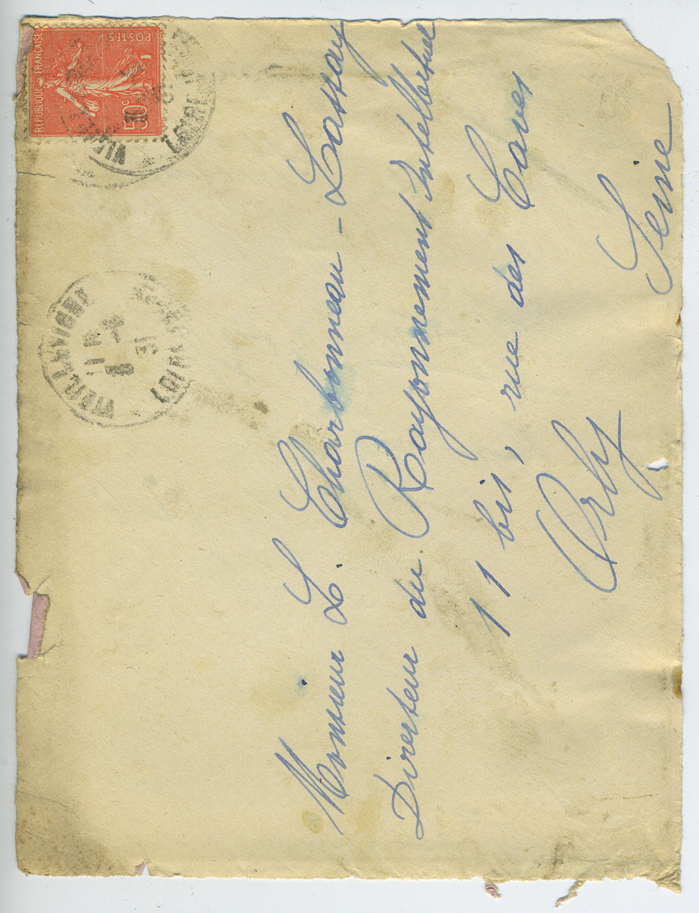 RÉPUBLIQUE FRANÇAISE
POSTES
50 c
VIEILLEVIGNE
11
8
31
Monsieur L. Charbonneau-Lassay
Directeur du Rayonnement Intellectuel
11 bis, rue des Caves
Orly
Seine